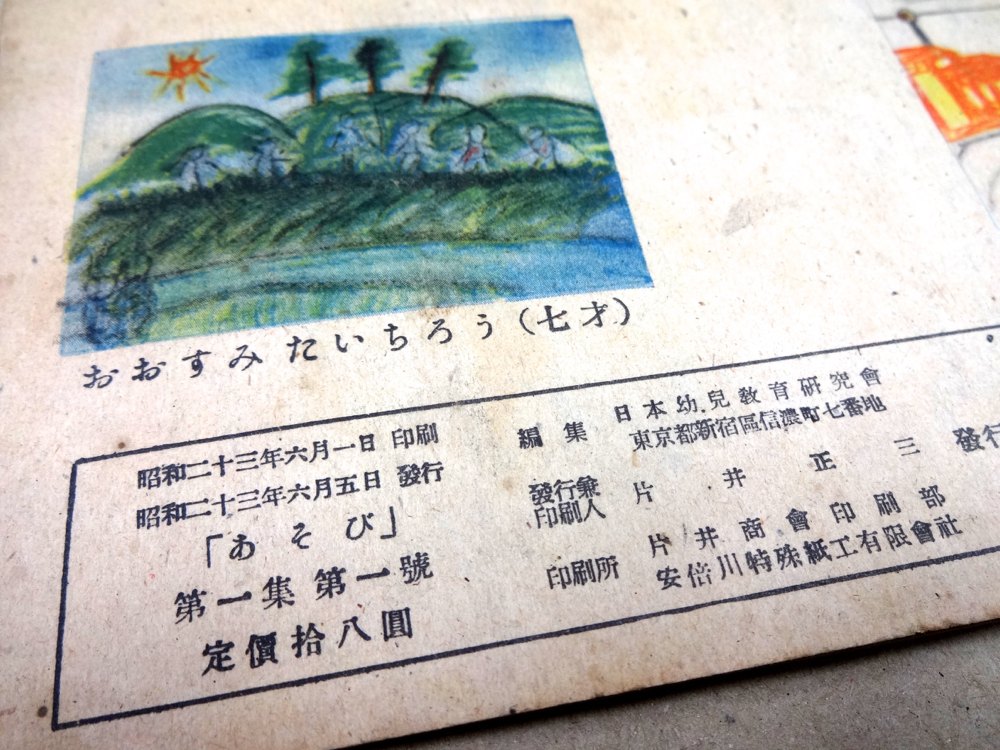 おおすみ たいちろう（七才）
昭和二十三年六月一日 印刷
昭和二十三年六月五日 發行
「あそび」
第一集 第一號
定價拾八圓
編集 日本幼兒敎育硏究會
東京都新宿區信濃町七番地
發行兼印刷人 片井正三
印刷所 片井商會印刷部
安倍川特殊紙工有限會社
發行